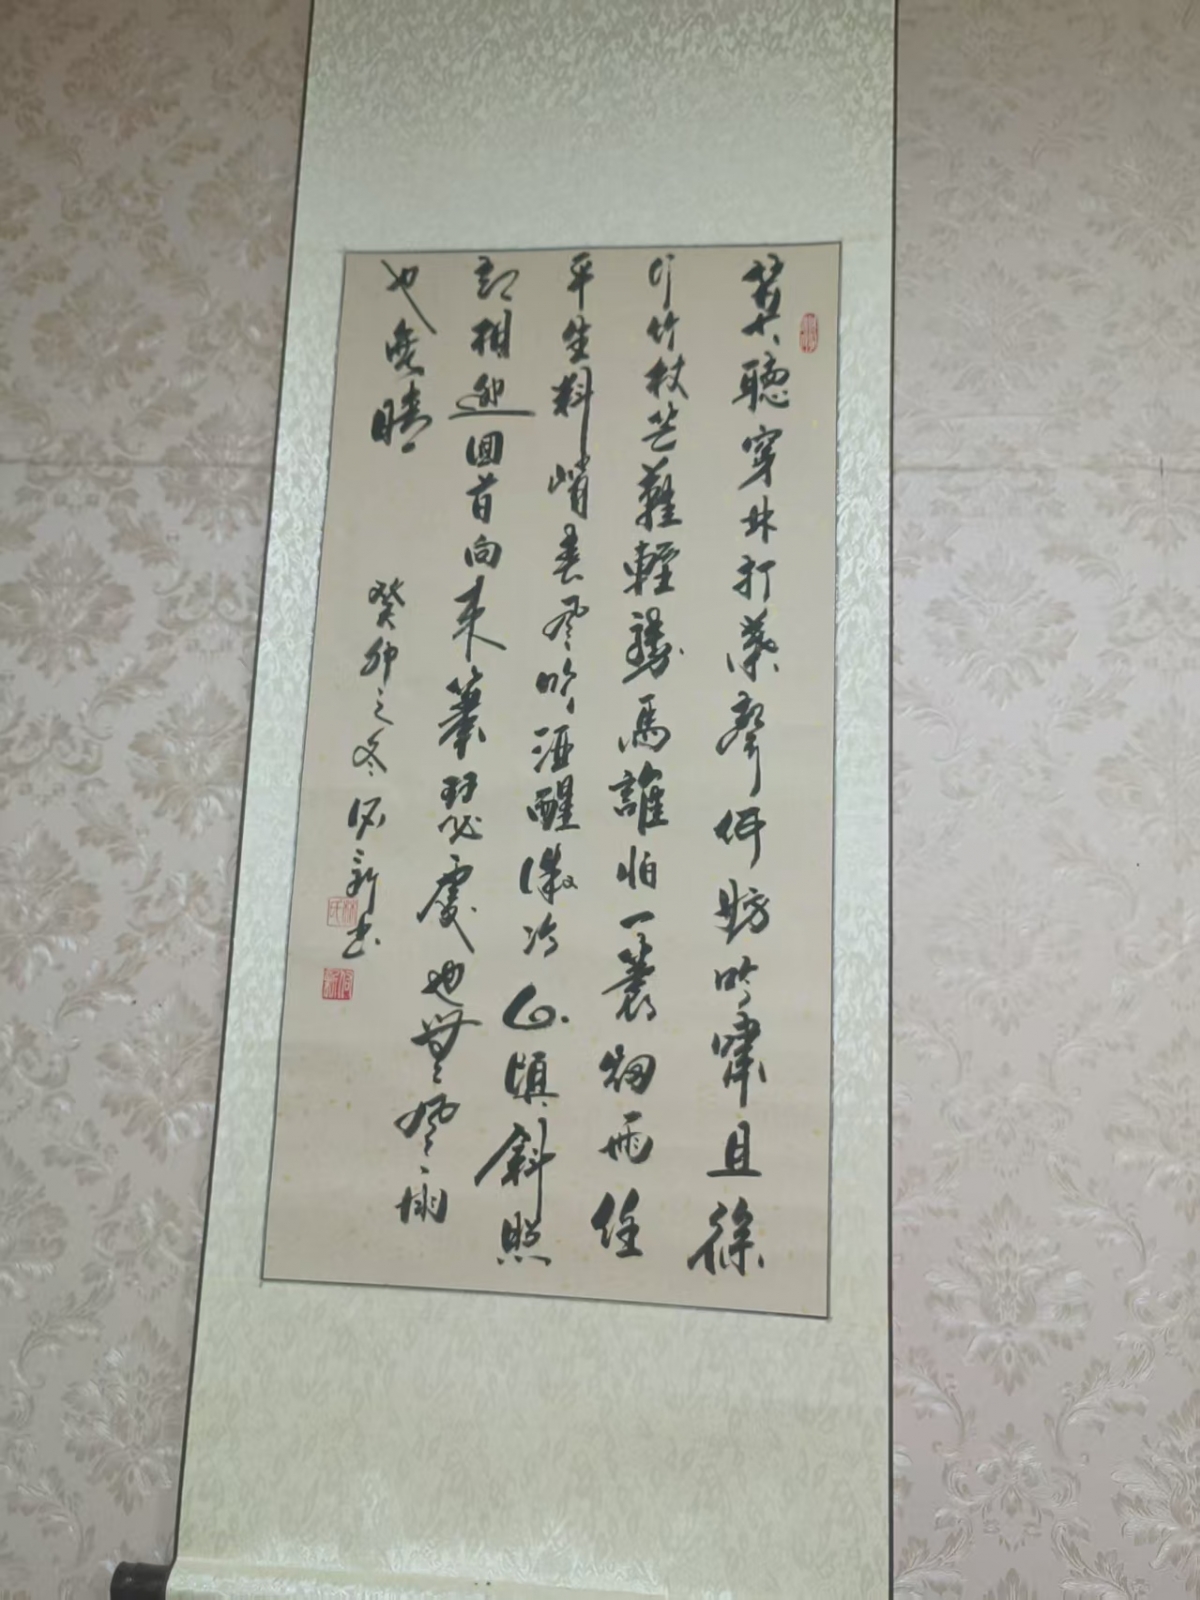 莫聽穿林打葉聲何妨吟嘯且徐
行竹杖芒鞋輕勝馬誰怕一蓑烟雨任
平生料峭春風吹酒醒微冷山頭斜照
却相迎回首向來蕭瑟處也無風雨
也無晴
癸卯之冬 新书